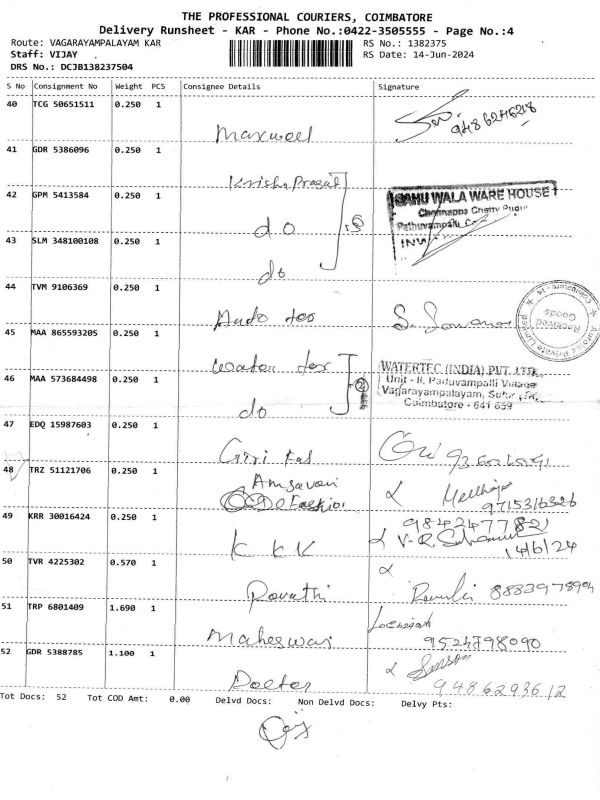 THE PROFESSIONAL COURIERS, COIMBATORE
Delivery Runsheet - KAR - Phone No.:0422-3505555 - Page No.:4
Route: VAGARAYAMPALAYAM KAR RS No.: 1382375
Staff: VIJAY RS Date: 14-Jun-2024
DRS No.: DCJB138237504
S No Consignment No Weight PCS Consignee Details Signature
40 TCG 50651511 0.250 1
Maxwell 9486246218
41 GDR 5386096 0.250 1
Krisha Prasat
42 GPM 5413584 0.250 1
do
SAHUWALA WARE HOUSE
Chennappa Chetty
Pathuvampalli
43 SLM 348100108 0.250 1
do
44 TVM 9106369 0.250 1
Received Goods
45 MAA 865593205 0.250 1
Water tex
WATERTEC (INDIA) PVT. LTD.
Unit - II, Paduvampalli Village
Vagarayampalayam, Sulur
Coimbatore - 641 659
46 MAA 573684498 0.250 1
do
47 EDQ 15987603 0.250 1
Giri
48 TRZ 51121706 0.250 1
Amsaveni
9715316326
49 KRR 30016424 0.250 1
9842477821
K K K V-R.
14/6/24
50 TVR 4225302 0.570 1
Revathi 8883978904
51 TRP 6801409 1.690 1
Maheswari 9524798090
52 GDR 5388785 1.100 1
Doctor 9486293612
Tot Docs: 52 Tot COD Amt: 0.00 Delvd Docs: Non Delvd Docs: Delvy Pts: